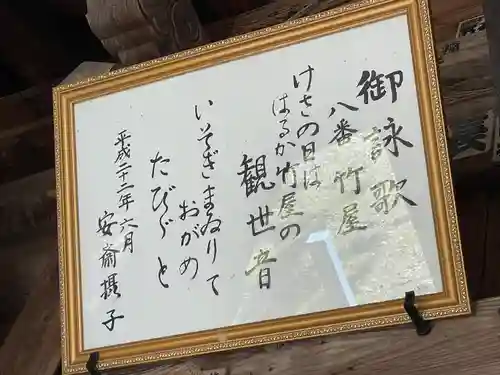 御詠歌
八番竹屋
けさの日は
はるか竹屋の
観世音
いそぎまゐりて
おがめ
たびゞと
平成二十二年六月
安斎摂子